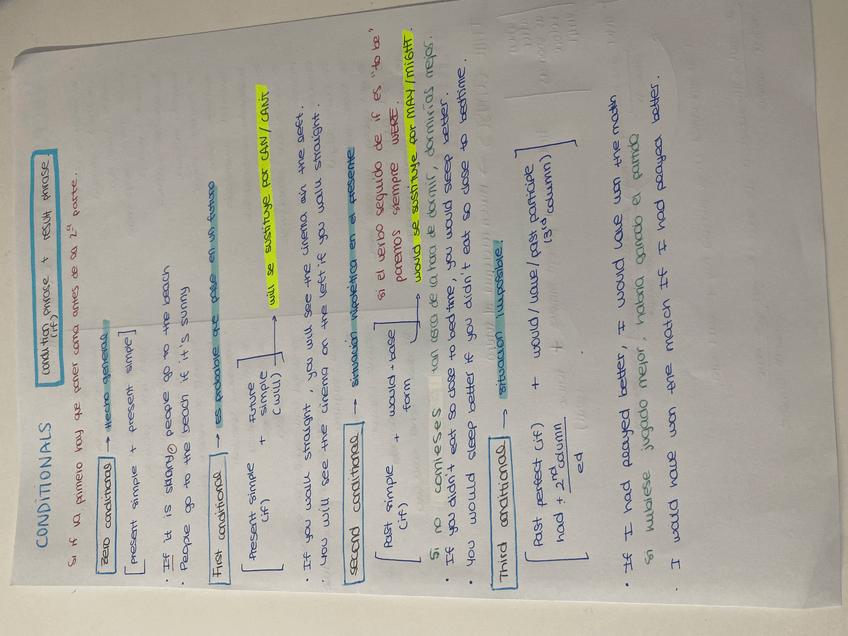 CONDITIONALS
condition phrase + result phrase
(if)
Si if va primero hay que poner coma antes de la 2ª parte.
Zero conditional → Hecho general
[present simple + present simple]
• If it is sunny, people go to the beach
• People go to the beach if it's sunny
First conditional → es probable que pase en un futuro
[Present simple + Future simple]
(if) (will)
→ will se sustituye por CAN/CAN'T
• If you walk straight, you will see the cinema on the left.
• You will see the cinema on the left if you walk straight.
Second conditional → situación hipotética en el presente
[Past simple + would + base form]
(if)
si el verbo seguido de if es "to be"
ponemos siempre WERE.
→ would se sustituye por MAY/MIGHT.
Si no comieses tan cerca de la hora de dormir, dormirías mejor.
• If you didn't eat so close to bed time, you would sleep better.
• You would sleep better if you didn't eat so close to bedtime.
Third conditional → situación imposible.
[Past perfect (if) + would/have/past participle]
had + 2nd column (3rd column)
ed
• If I had played better, I would have won the match
Si hubiese jugado mejor, habría ganado el partido
• I would have won the match if I had played better.